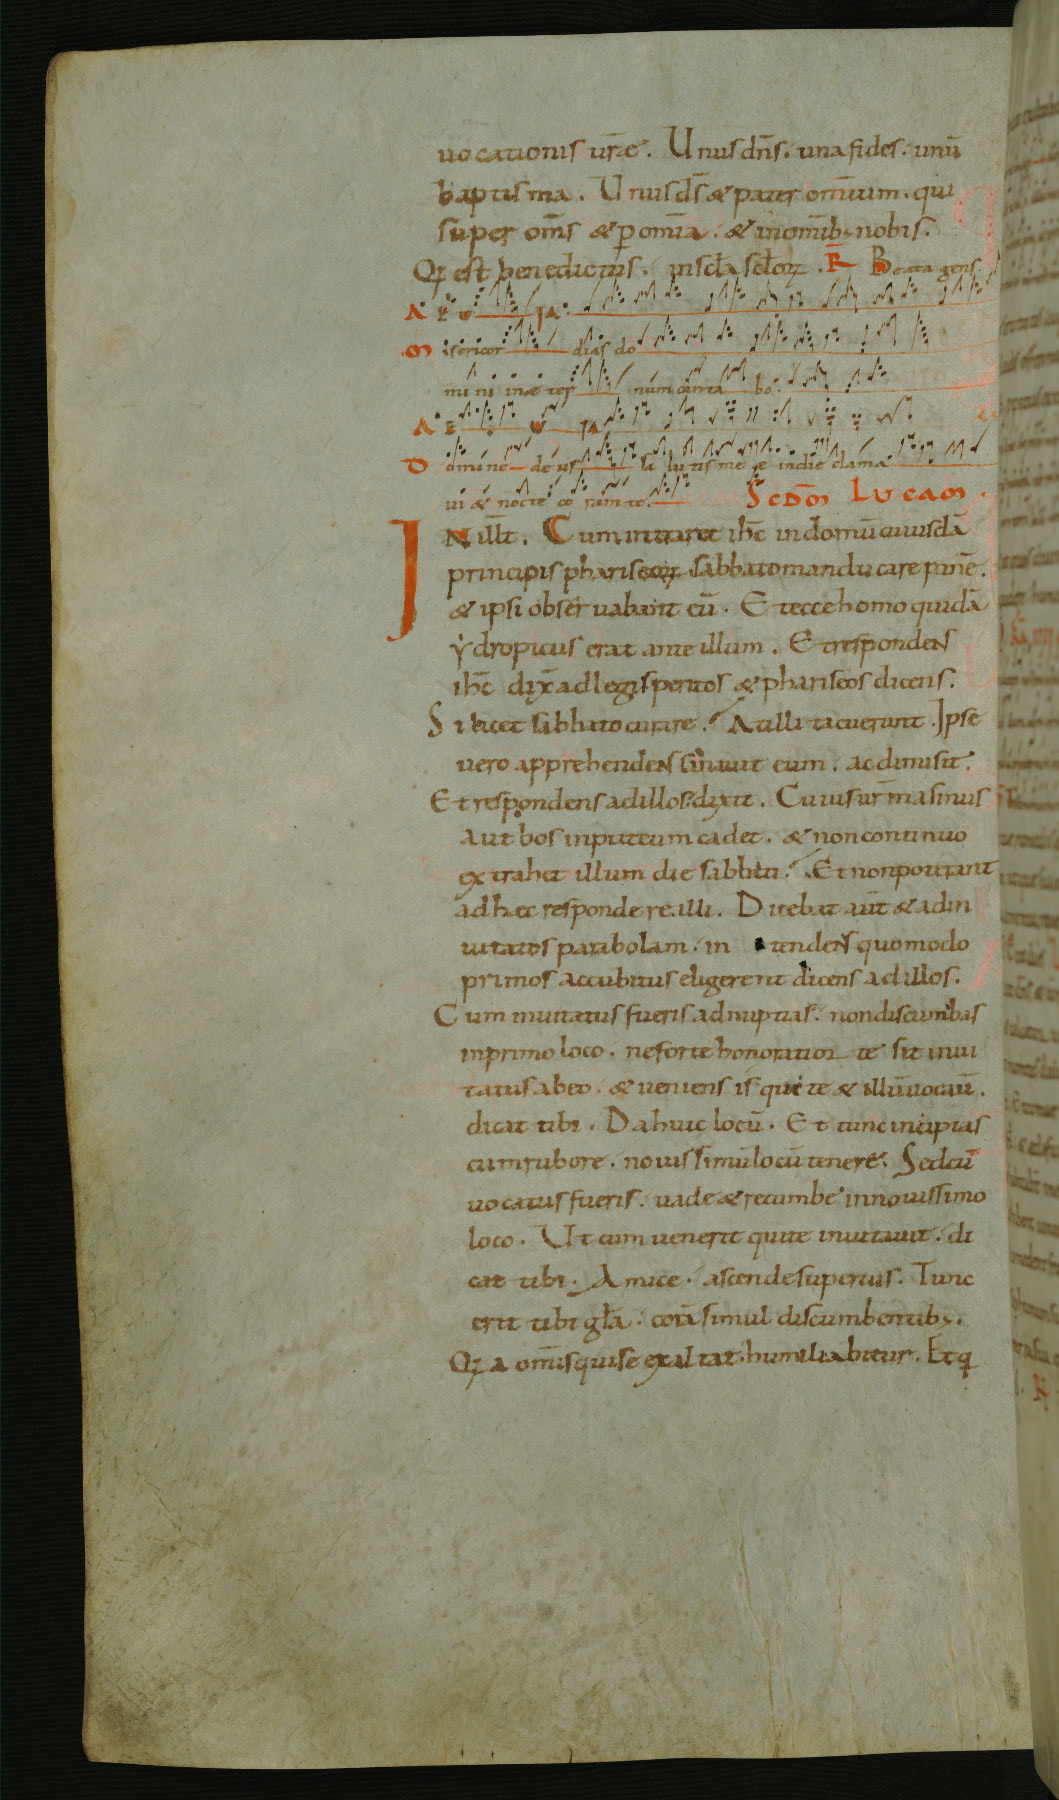 uocationis ur̄ae. Unus dn̄s. una fides. unū
baptisma. Unus ds̄ & pater omīum. qui
super om̄s & ꝑ omīa. & in omīb; nobis.
Qꝫ est benedictus. in scl̄a scl̄oꝝ. R̄ Beata gens
A E U IA
Misericor dias do
mini in ae ter num canta bo.
A E U IA
Domine deus salutis meae in die clama
ui & nocte coram te. Scd̄m Lucam.
IN ill̄t. Cum intraret ih̄c in domū cuiusdā
principis phariseoꝝ sabbato manducare panē.
& ipsi obseruabant eū. Et ecce homo quidā
ẏdropicus erat ante illum. Et respondens
ih̄c dix̄ ad legisperitos & phariseos dicens.
Si licet sabbato curare. At illi tacuerunt. Ipse
uero apprehendens sanauit eum. ac dimisit.
Et respondens ad illos dixit. Cuius ur̄m asinus
aut bos in puteum cadet. & non continuo
extrahet illum die sabbati. Et non poterant
ad hec respondere illi. Dicebat aūt & ad in
uitatos parabolam. in tendens quomodo
primos accubitus eligerent dicens ad illos.
Cum inuitatus fueris ad nuptias. non discumbas
in primo loco. ne forte honoratior te sit inui
tatus ab eo. & ueniens is qui te & illū uocauī.
dicat tibi. Da huic locū. Et tunc incipias
cum rubore. nouissimū locū tenere. Sed cū
uocatus fueris. uade & recumbe in nouissimo
loco. Ut cum uenerit qui te inuitauit. di
cat tibi. Amice. ascende superius. Tunc
erit tibi gl̄a. corā simul discumbentib;.
Qꝫa omīs qui se exaltat. humiliabitur. Et q